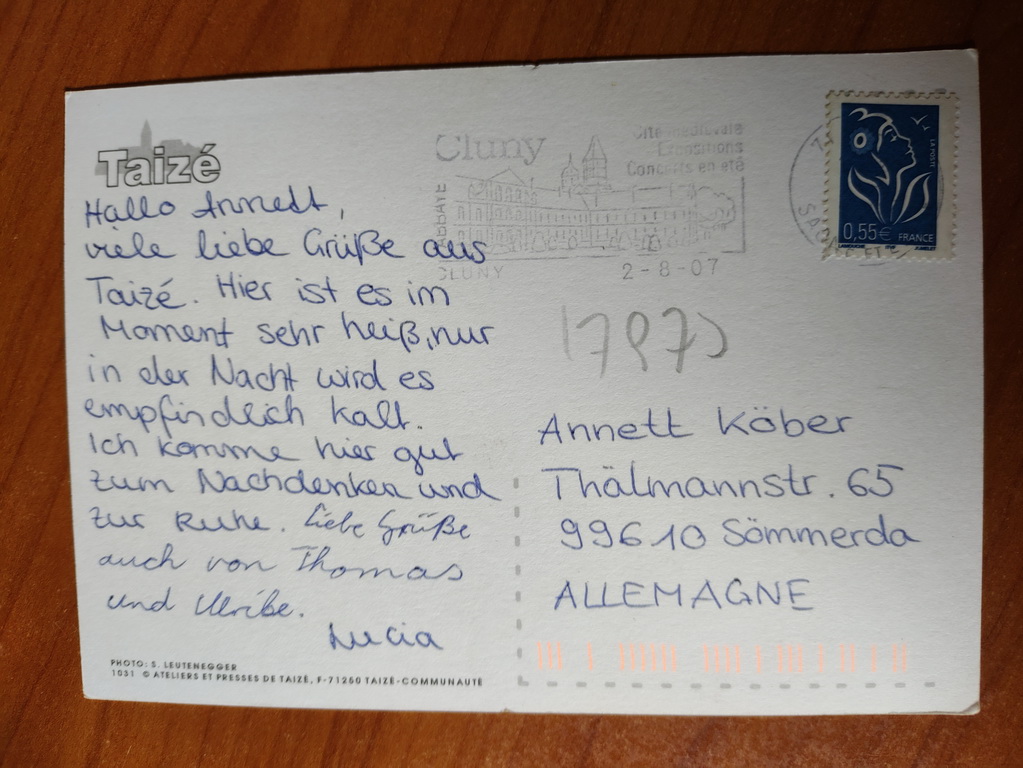 Taizé
Hallo Annett,
viele liebe Grüße aus
Taizé. Hier ist es im
Moment sehr heiß, nur
in der Nacht wird es
empfindlich kalt.
Ich komme hier gut
zum Nachdenken und
zur Ruhe. Liebe Grüße
auch von Thomas
und Ulrike.
Lucia
PHOTO: S. LEUTENEGGER
1031 © ATELIERS ET PRESSES DE TAIZÉ, F-71250 TAIZÉ-COMMUNAUTÉ
Cluny
Cité médiévale
Expositions
Concerts en été
CLUNY
2-8-07
LA POSTE
0,55€ FRANCE
Annett Köber
Thälmannstr. 65
99610 Sömmerda
ALLEMAGNE